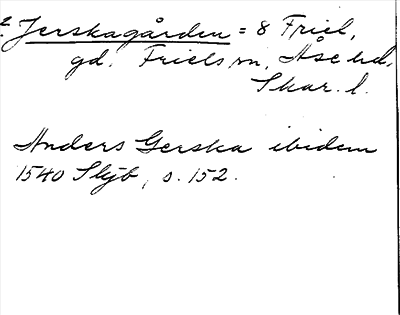 2. Jerskagården = 8 Friel,
gd. Friels sn, Åse hd.
Skar. l.
Anders Gerska ibidem
1540 Slgb, s. 152.